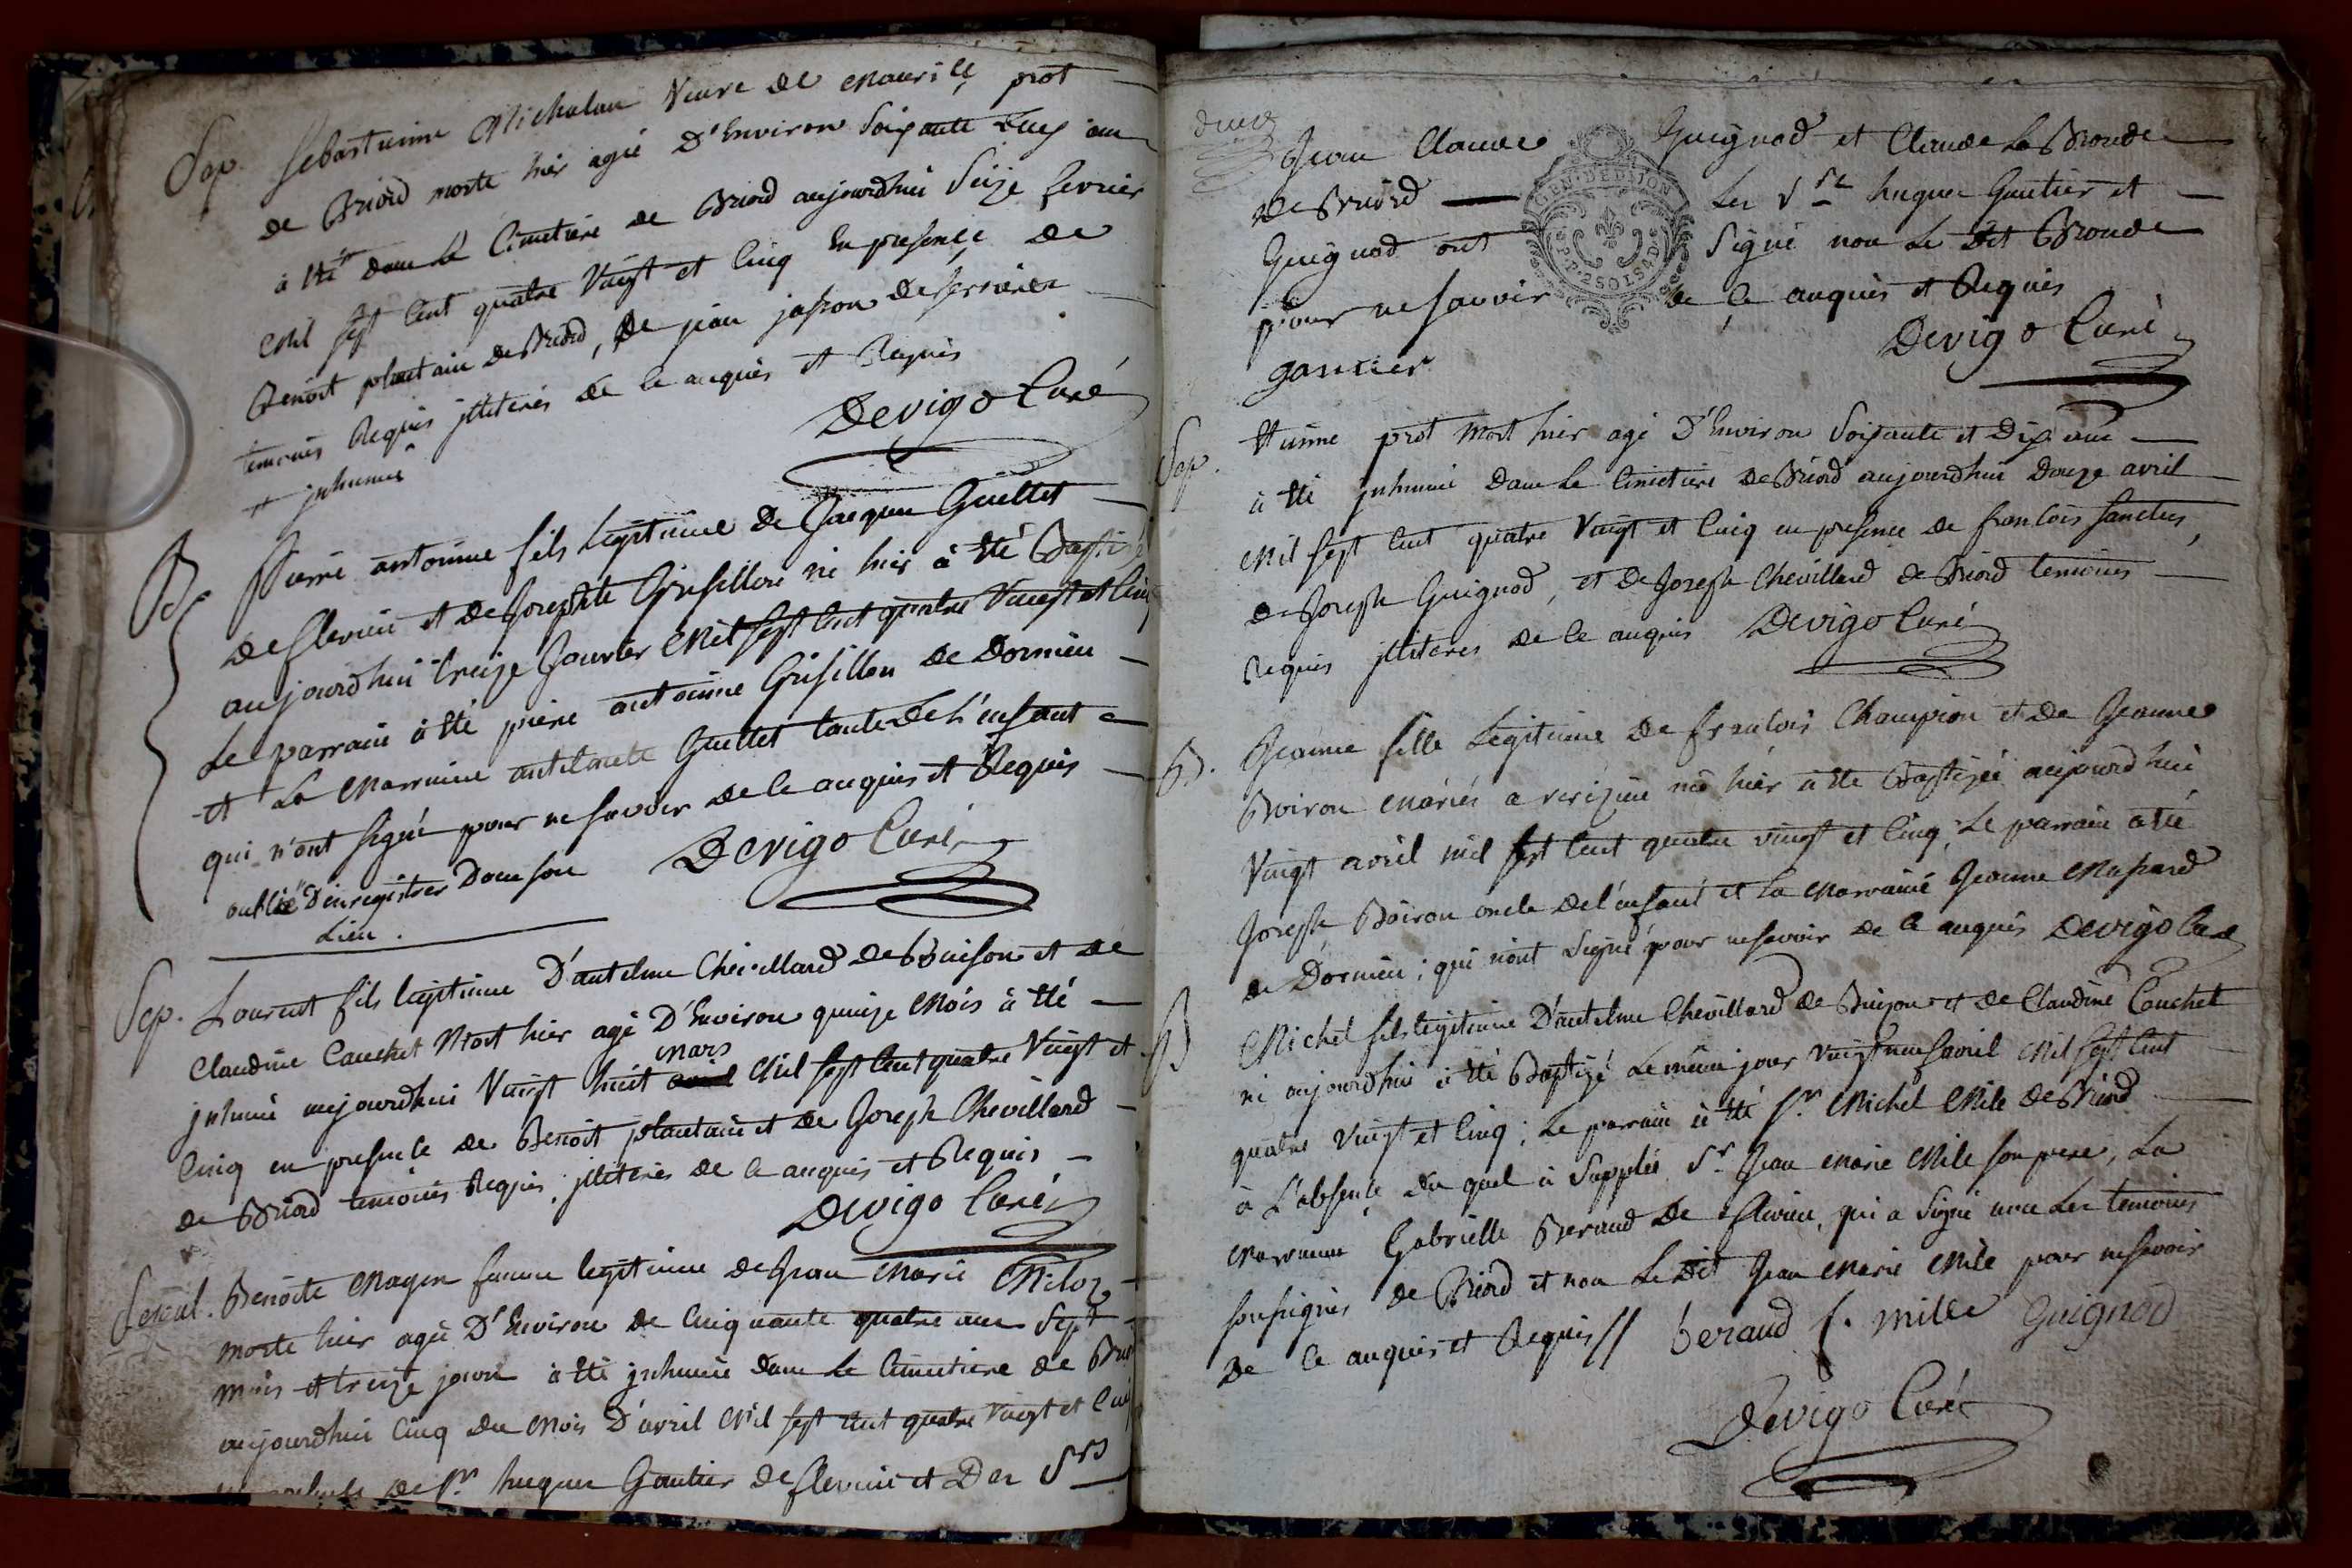 Sep. Sebastienne Michalan Veuve de Maurice prot
de Briord morte hier agée D'Environ Soixante ans
à été + dans le Cimetiere de Briord aujourdhui Seize fevrier
Mil sept Cent quatre Vingt et Cinq En presence de
Benoit plantain de Briord, de jean jasson de serrieres
temoins Requis jlliterés de ce anquis et Requis
+ jnhumée
Devigo Curé
B. Pierre antoinne fils Legitime de Jacques Guillet
de flevieu et de Josephte Grisillon né hier à été Baptisé
aujourdhui treize Janvier Mil sept Cent quatre Vingt et Cinq
Le parrain à été pierre antoinne Grisillon de Dornieu
et La Marraine antelmete Guillet tante de L'enfant
qui n'ont signé pour ne savoir de ce anquis et Requis
oublié D'enregistrer Dans son
Lieu.
Devigo Curé
Sep. Laurent fils legitime D'antelme Chevillard de Buison et de
Claudine Cauchet Mort hier agé D'Environ quinze Mois à été
jnhumé aujourdhui Vingt huit mars Mil sept Cent quatre Vingt et
Cinq en presence de Benoit plantain et de Joseph Chevillard
de Briord temoins Requis jlliterés de ce anquis et Requis
Devigo Curé
Benoite Mayen femme legitime de Jean Marie Miloz
morte hier agée D'Environ de Cinquante quatre ans Sept
mois et treize jours à été jnhumée dans le Cimetiere de
aujourdhui Cinq du Mois D'avril Mil sept Cent quatre Vingt et
de Sr. hugues Gautier de flevieu et Des Srs
Jean Claude Guignod et Claude La Bronde
de Briord Les Srs hugues Gautier et
Guignod ont Signé non Le Dit Bronde
pour ne savoir de ce anquis et Requis
gautier
Devigo Curé
GEN. DE DIJON
Sep. Etienne prot mort hier agé D'Environ Soixante et Dix ans
à été jnhumé dans Le Cimetiere de Briord aujourdhui Douze avril
Mil sept Cent quatre Vingt et Cinq en presence de francois sanctus,
de Joseph Guignod, et de Joseph Chevillard de Briord temoins
Requis jlliterés de ce anquis Devigo Curé
B. Jeanne fille Legitime de francois Champion et de Jeanne
Boiron Mariés a verizieu née hier à été Baptizée aujourdhui
Vingt avril mil sept Cent quatre vingt et Cinq, Le parrain a été
Joseph Boiron oncle de l'enfant et La Marraine Jeanne
de Dornieu; qui n'ont Signé pour ne savoir de ce anquis Devigo Curé
B Michel fils legitime D'antelme Chevillard de Buison et de Claudine Cauchet
né aujourdhui à été Baptizé Le même jour Vingt neuf avril Mil sept Cent
quatre Vingt et Cinq; Le parrain à été Sr. Michel Mile de Briord
à L'absence du quel à Supplée Sr. Jean Marie Mile son pere, La
Marraine Gabrielle Beraud de flevieu, qui a Signé avec Les temoins
soussignés de Briord et non Le Dit Jean Marie Mile pour ne savoir
de ce anquis et Requis // beraud f. mille Guignod
Devigo Curé